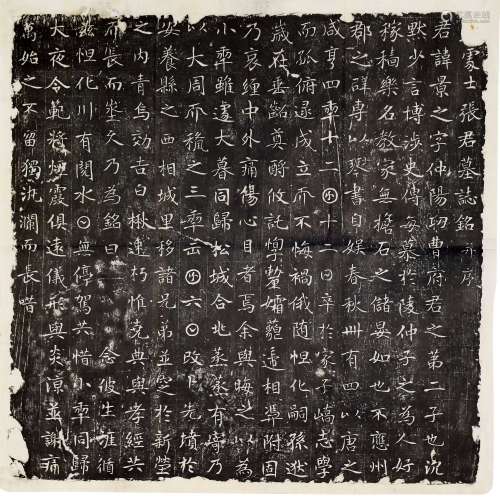 處士張君墓誌銘并序
君諱景之字仲陽功曹府君之第二子也沉
默少言博涉史傳每慕於陵仲子之為人好
稼穡樂名教家無擔石之儲晏如也不應州
郡之辟專以琴書自娛春秋卅有四以唐之
咸亨四年十二月十二日卒於家子嶠志學
而孤俯逮成立而不悔禍俄隨怛化嗣孫逖
歲在齠齔奠酹攸託煢嫠孀藐遺相凭附固
乃哀纏中外痛傷心目者焉余與晦之以為
小年雖遽大暮同歸松城合兆蒸嘗有寄乃
以大周天授之三年正月六日改卜先墳於
安養縣之西相城里移諸兄弟並窆於新塋
之内青烏効吉白楸速朽惟堯典與孝經共
而長坐久乃為銘曰 念彼生涯循
茲怛化川有閱水日無停駕共惜小年同歸
大夜令範將煙霞俱遠儀形與炎涼並謝痛
萬始之不留獨汍瀾而長喈